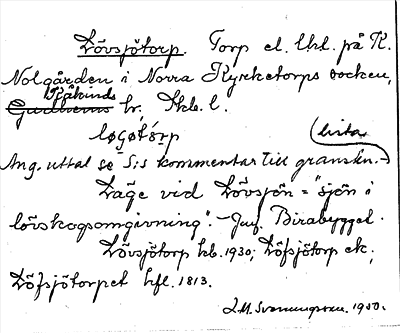 Lövsjötorp. Torp el. lht. på K.
Nolgården i Norra Kyrketorps socken,
Kåkinds
Gudhems hr. Skb. l.
Ang. uttal se S:s kommentar till granskn.-
lista
Läge vid Lövsjön = "sjön i
lövskogsomgivning". - Juf. Birabygget.
Lövsjötorp hb. 1930; Löfsjötorp ek;
Löfsjötorpet hfl. 1813.
J.M. Svenungsson. 1950.